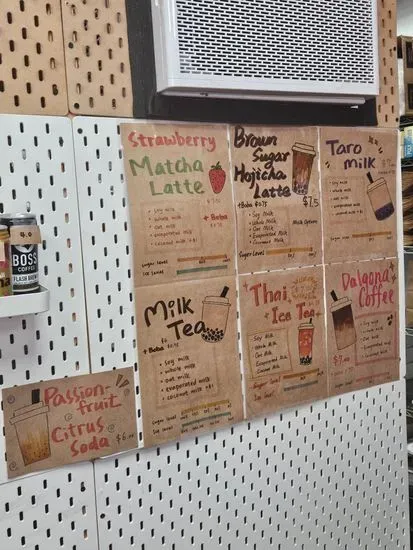 Strawberry
Matcha
Latte
• Soy milk
• Whole milk
• Oat milk
• evaporated milk
• Coconut milk +$1
+ Boba
Sugar level
Ice level
Brown
Sugar
Hojicha
Latte
$7.5
+Boba $0.75
• Soy Milk
• Whole Milk
• Oat Milk
• Evaporated
• Coconut Milk
Milk Option
Sugar Level
Taro
milk
• Soy milk
• whole milk
• oat milk
• evaporated milk
• coconut milk +$1
Sugar level
Milk
Tea
+ Boba
• soy milk
• whole milk
• oat milk
• evaporated milk
• coconut milk +$1
Sugar level
Ice level
Thai
Ice Tea
• Soy Milk
• Whole Milk
• Oat Milk
• Evaporated
• Coconut Milk
Sugar level
Ice level
Dalgona
Coffee
• Soy milk
• whole milk
• oat milk
• Evaporated milk
• coconut milk
Passion-
fruit
Citrus
Soda
BOSS
COFFEE
FLASH BREW